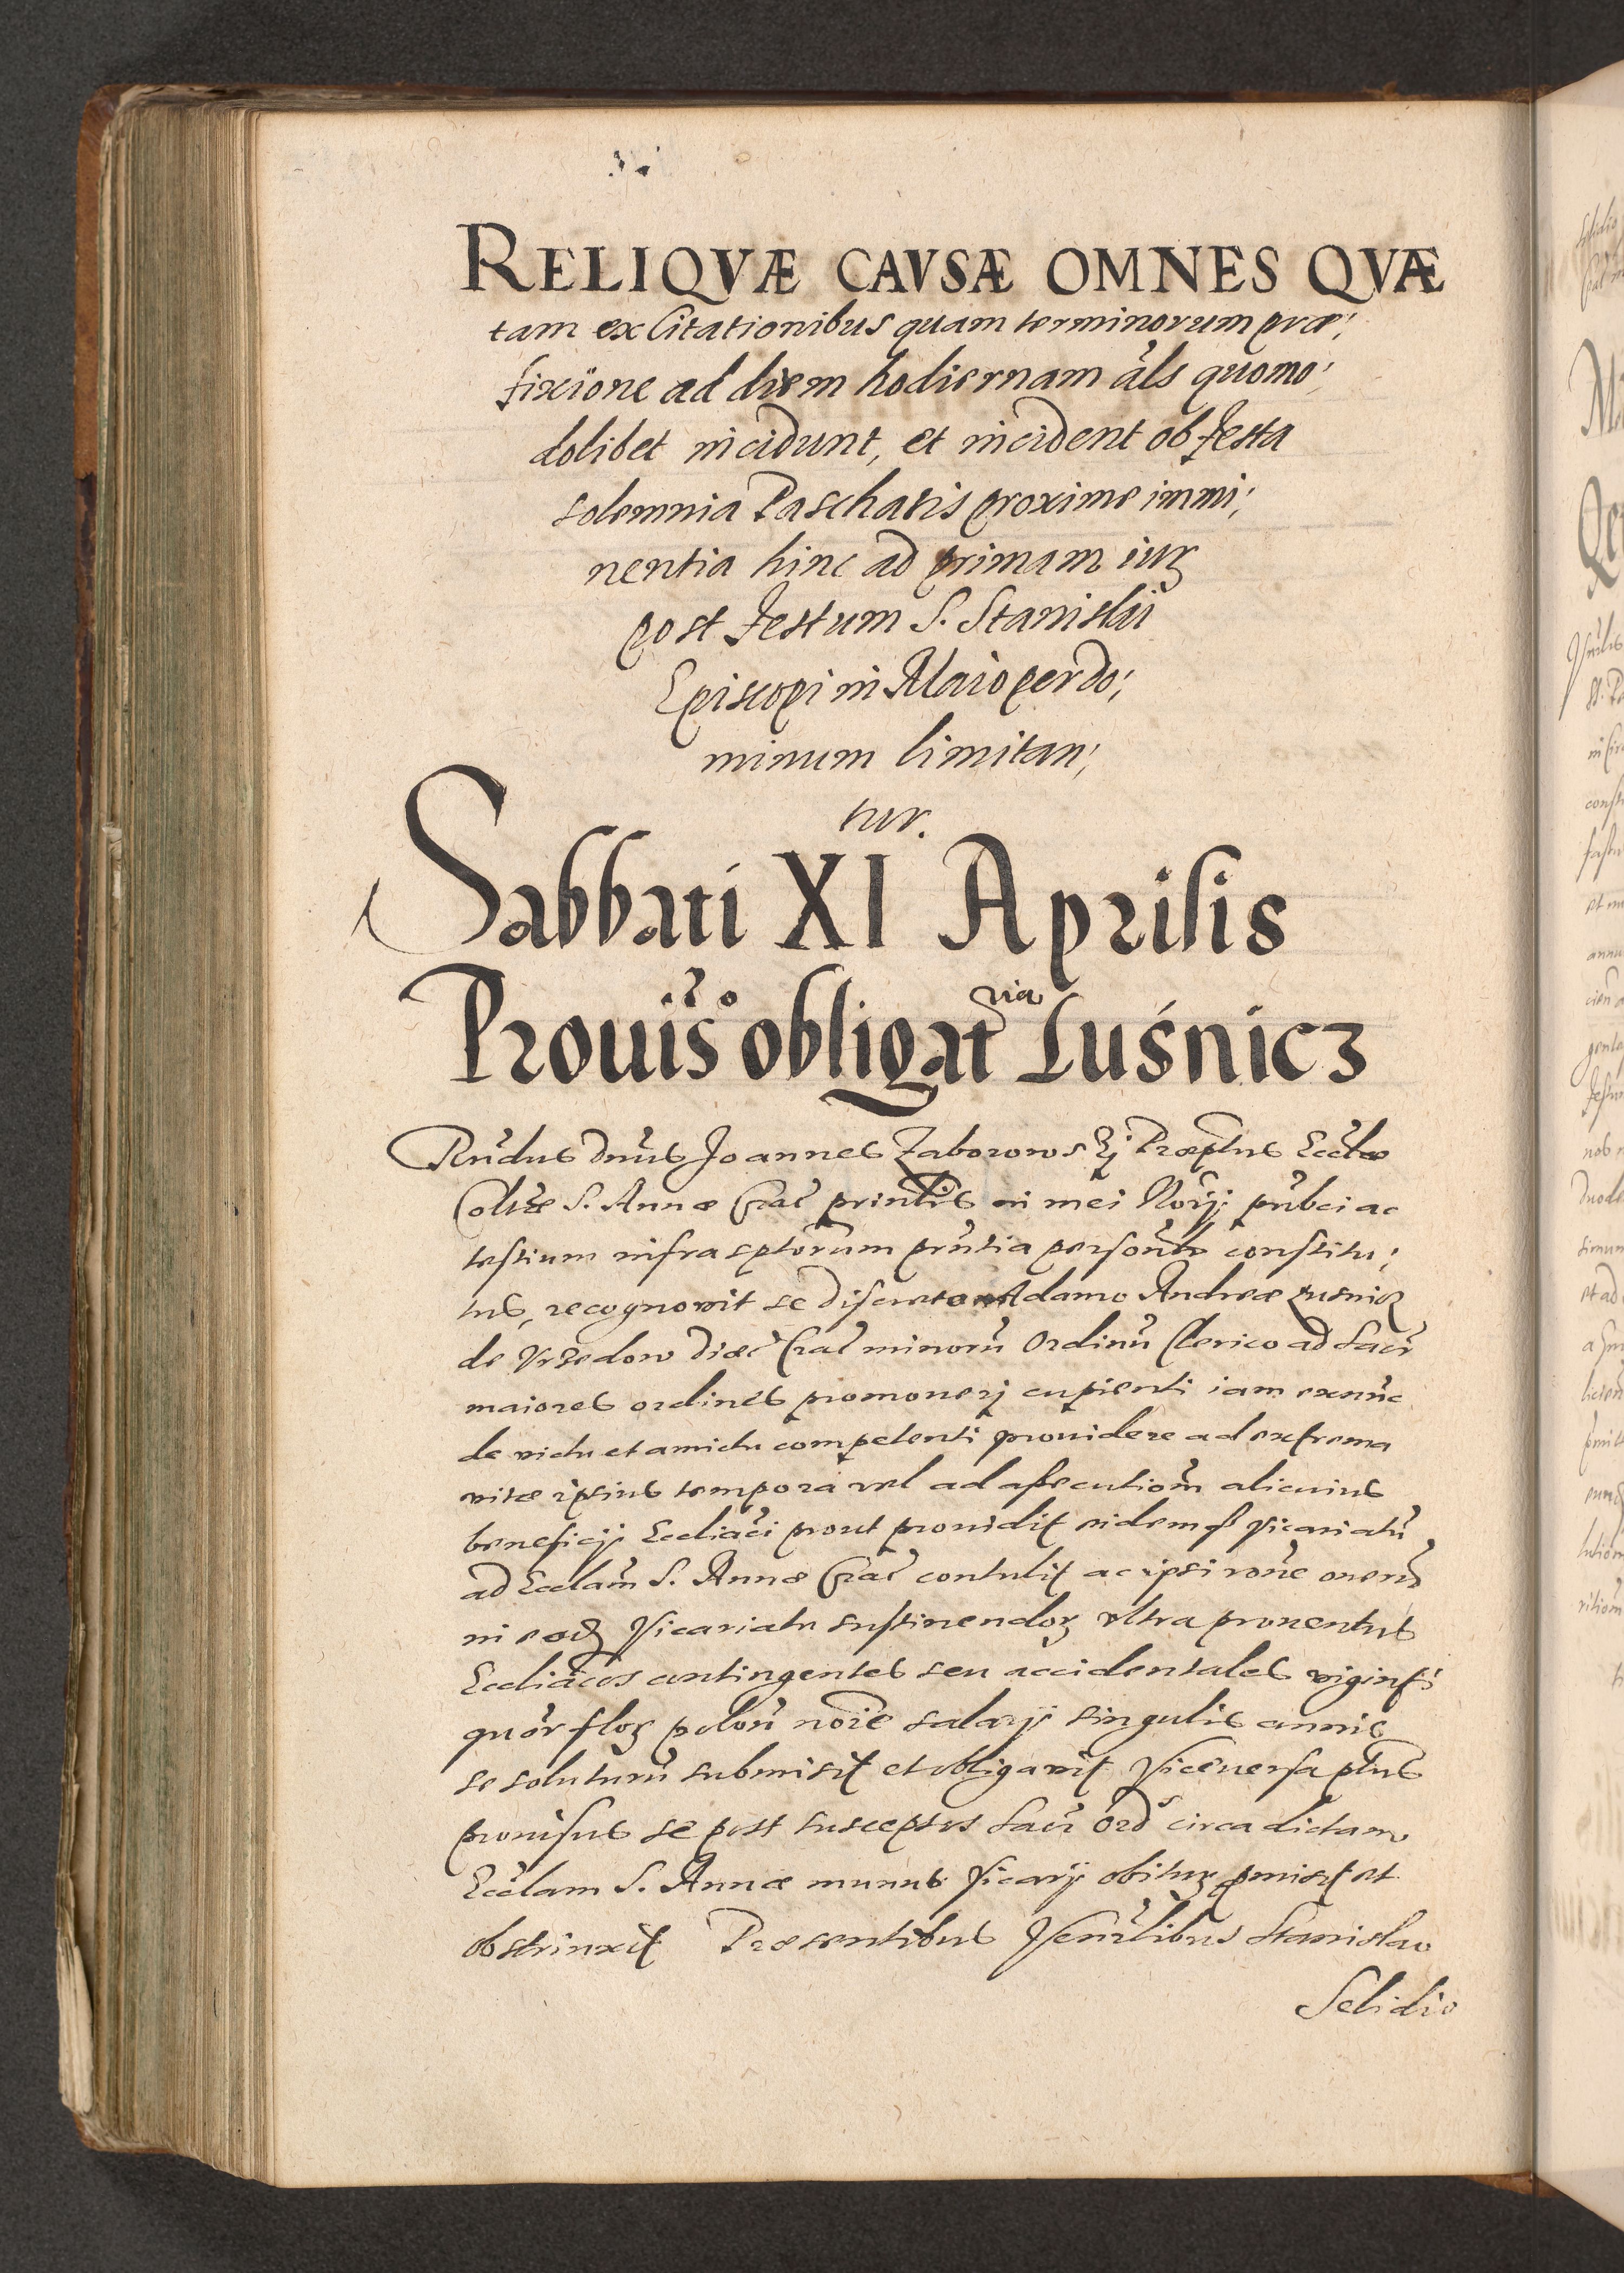 RELIQVÆ CAVSÆ OMNES QVÆ
tam ex Citationibus quam terminorum præ;
fixione ad diem hodiernam als quomo;
dolibet incidunt, et incident ob festa
solemnia Paschatis proxime immi;
nentia hinc ad primam iurꝫ
post festum S. Stanislai
Episcopi in Maio per do;
minum limitan;
tur.
Sabbati XI Aprilis
Prouiso obligatria Luśnicz
Rndus Dnus Joannes Zaborowski Præptus Ecclæ
Coltæ S. Annæ Crac printis in mei Norij publci ac
testium infrascptorum prntia personlr constitu;
tus, recognovit se discreto Adamo Andreæ Lusnicz
de Vrzedow Diæc Crac minorũ Ordinũ Clerico ad Sacr
maiores ordines promouerj cupienti iam exnunc
de victu et amictu competenti prouidere ad extrema
vitæ ipsius tempora vel ad assecutiom alicuius
beneficij Eccliaci prout prouidit eidemq Vicariatũ
ad Ecclam S. Annæ Crac contulit ac ipsi rone onerũ
in eodꝫ Vicariatu sustinendoꝝ vltra prouentus
Eccliacos contingentes seu accidentales viginti
quor floꝝ polon noie salarij singulis annis
se soluturũ submisit et obligavit Viceversa ptus
prouisus se post susceptos Sacr Ords circa dictam
Ecclam S. Annæ munus Vicarij obiturꝫ pmisit et
obstrinxit Præsentibus Venrlibus Stanislao
Selidio